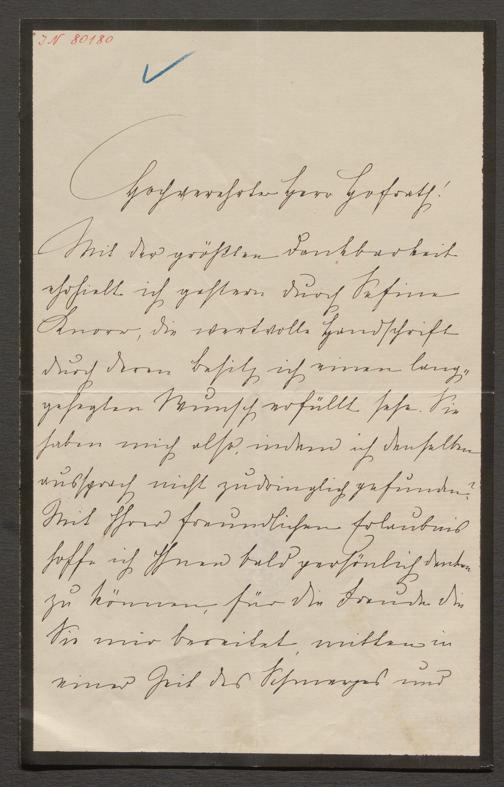 IN 80180
Hochverehrter Herr Hofrath!
Mit der größten Dankbarkeit
erhielt ich gestern durch Sefine
Knorr, die wertvolle Handschrift
durch deren besitz ich einen lang„
gehegten Wunsch erfüllt sehe. Sie
haben mich also, indem ich denselben
aussprach nicht zudringlich gefunden?
Mit Ihrer freundlichen Erlaubnis
hoffe ich Ihnen bald persönlich danken
zu können, für die Freude die
Sie mir bereitet, mitten in
einer Zeit des Schmerzes und